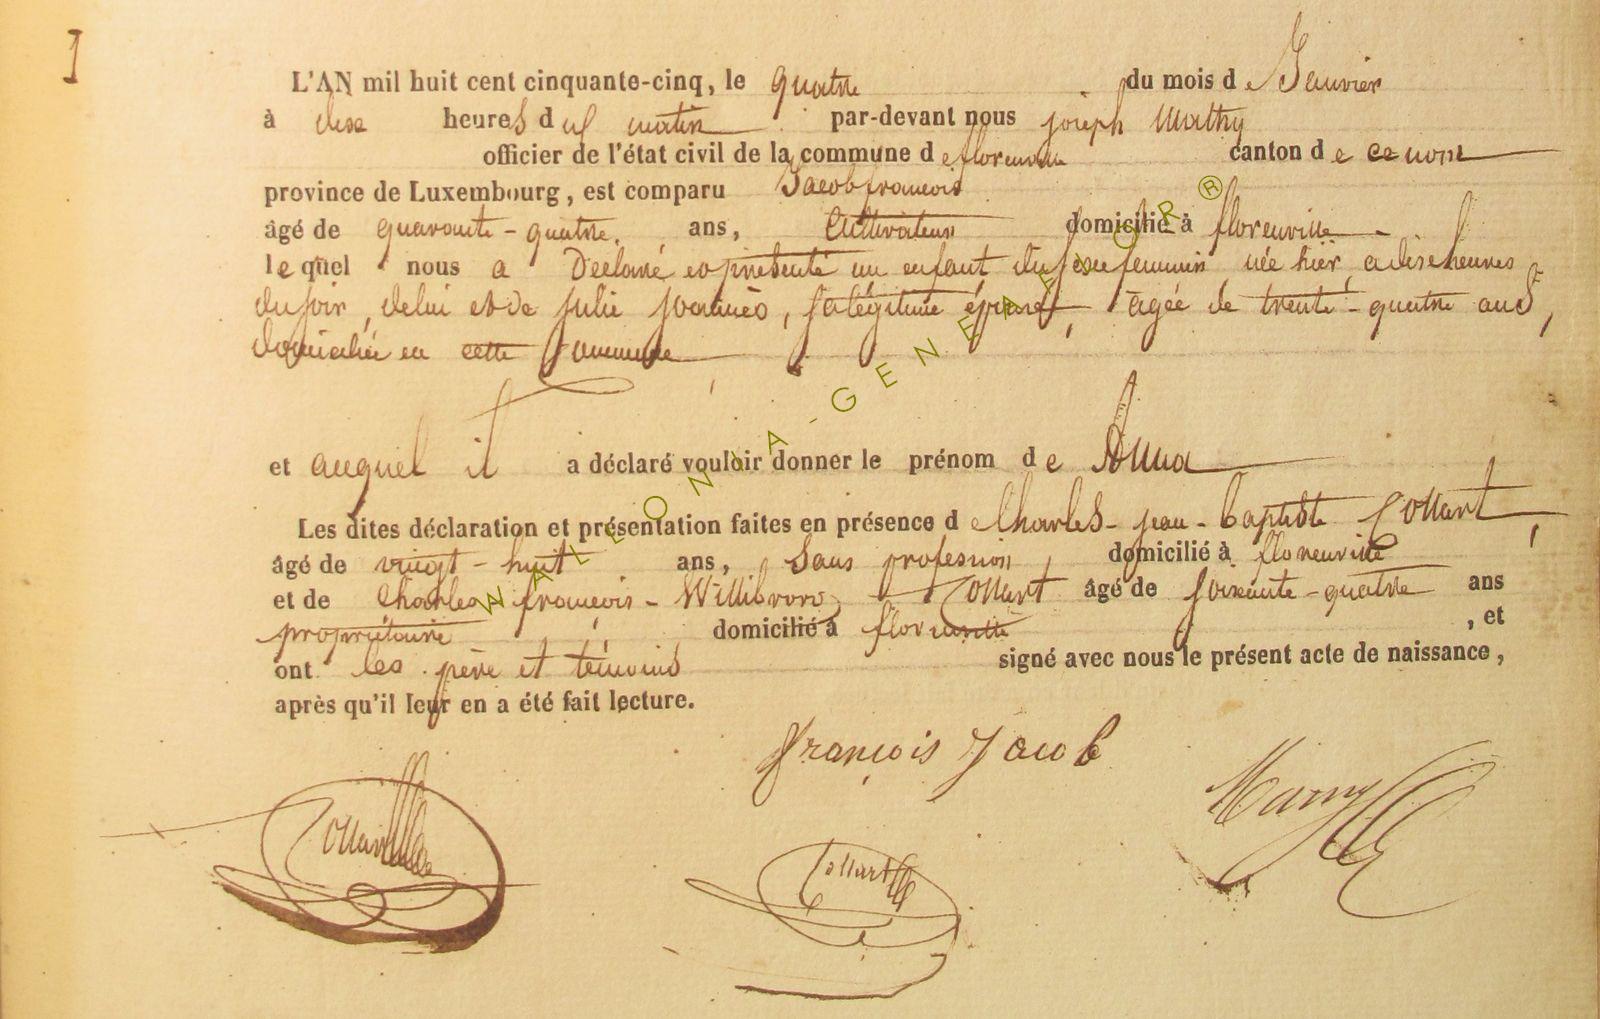 1
L'AN mil huit cent cinquante-cinq, le quatre du mois de Janvier
à dix heures du matin par-devant nous joseph Mathy
officier de l'état civil de la commune de florenville canton de ce nom
province de Luxembourg, est comparu Jacob françois
âgé de quarante-quatre ans, Cultivateur domicilié à florenville
lequel nous a Déclaré et présenté un enfant du sexe feminin née hier, a dix heures
du soir, de lui et de julie joannès, sa légitime épouse, agée de trente-quatre ans,
domiciliée en cette Commune
et auquel il a déclaré vouloir donner le prénom de Anna
Les dites déclaration et présentation faites en présence de Charles-jean-baptiste Collart,
âgé de vingt-huit ans, Sans profession domicilié à florenville
et de Charles françois-Willibrord Collart âgé de soixante-quatre ans
propriétaire domicilié à florenville, et
ont les père et témoins signé avec nous le présent acte de naissance,
après qu'il leur en a été fait lecture.
françois Jacob
Collart
Collart
WALLONIA-GENEALOR®